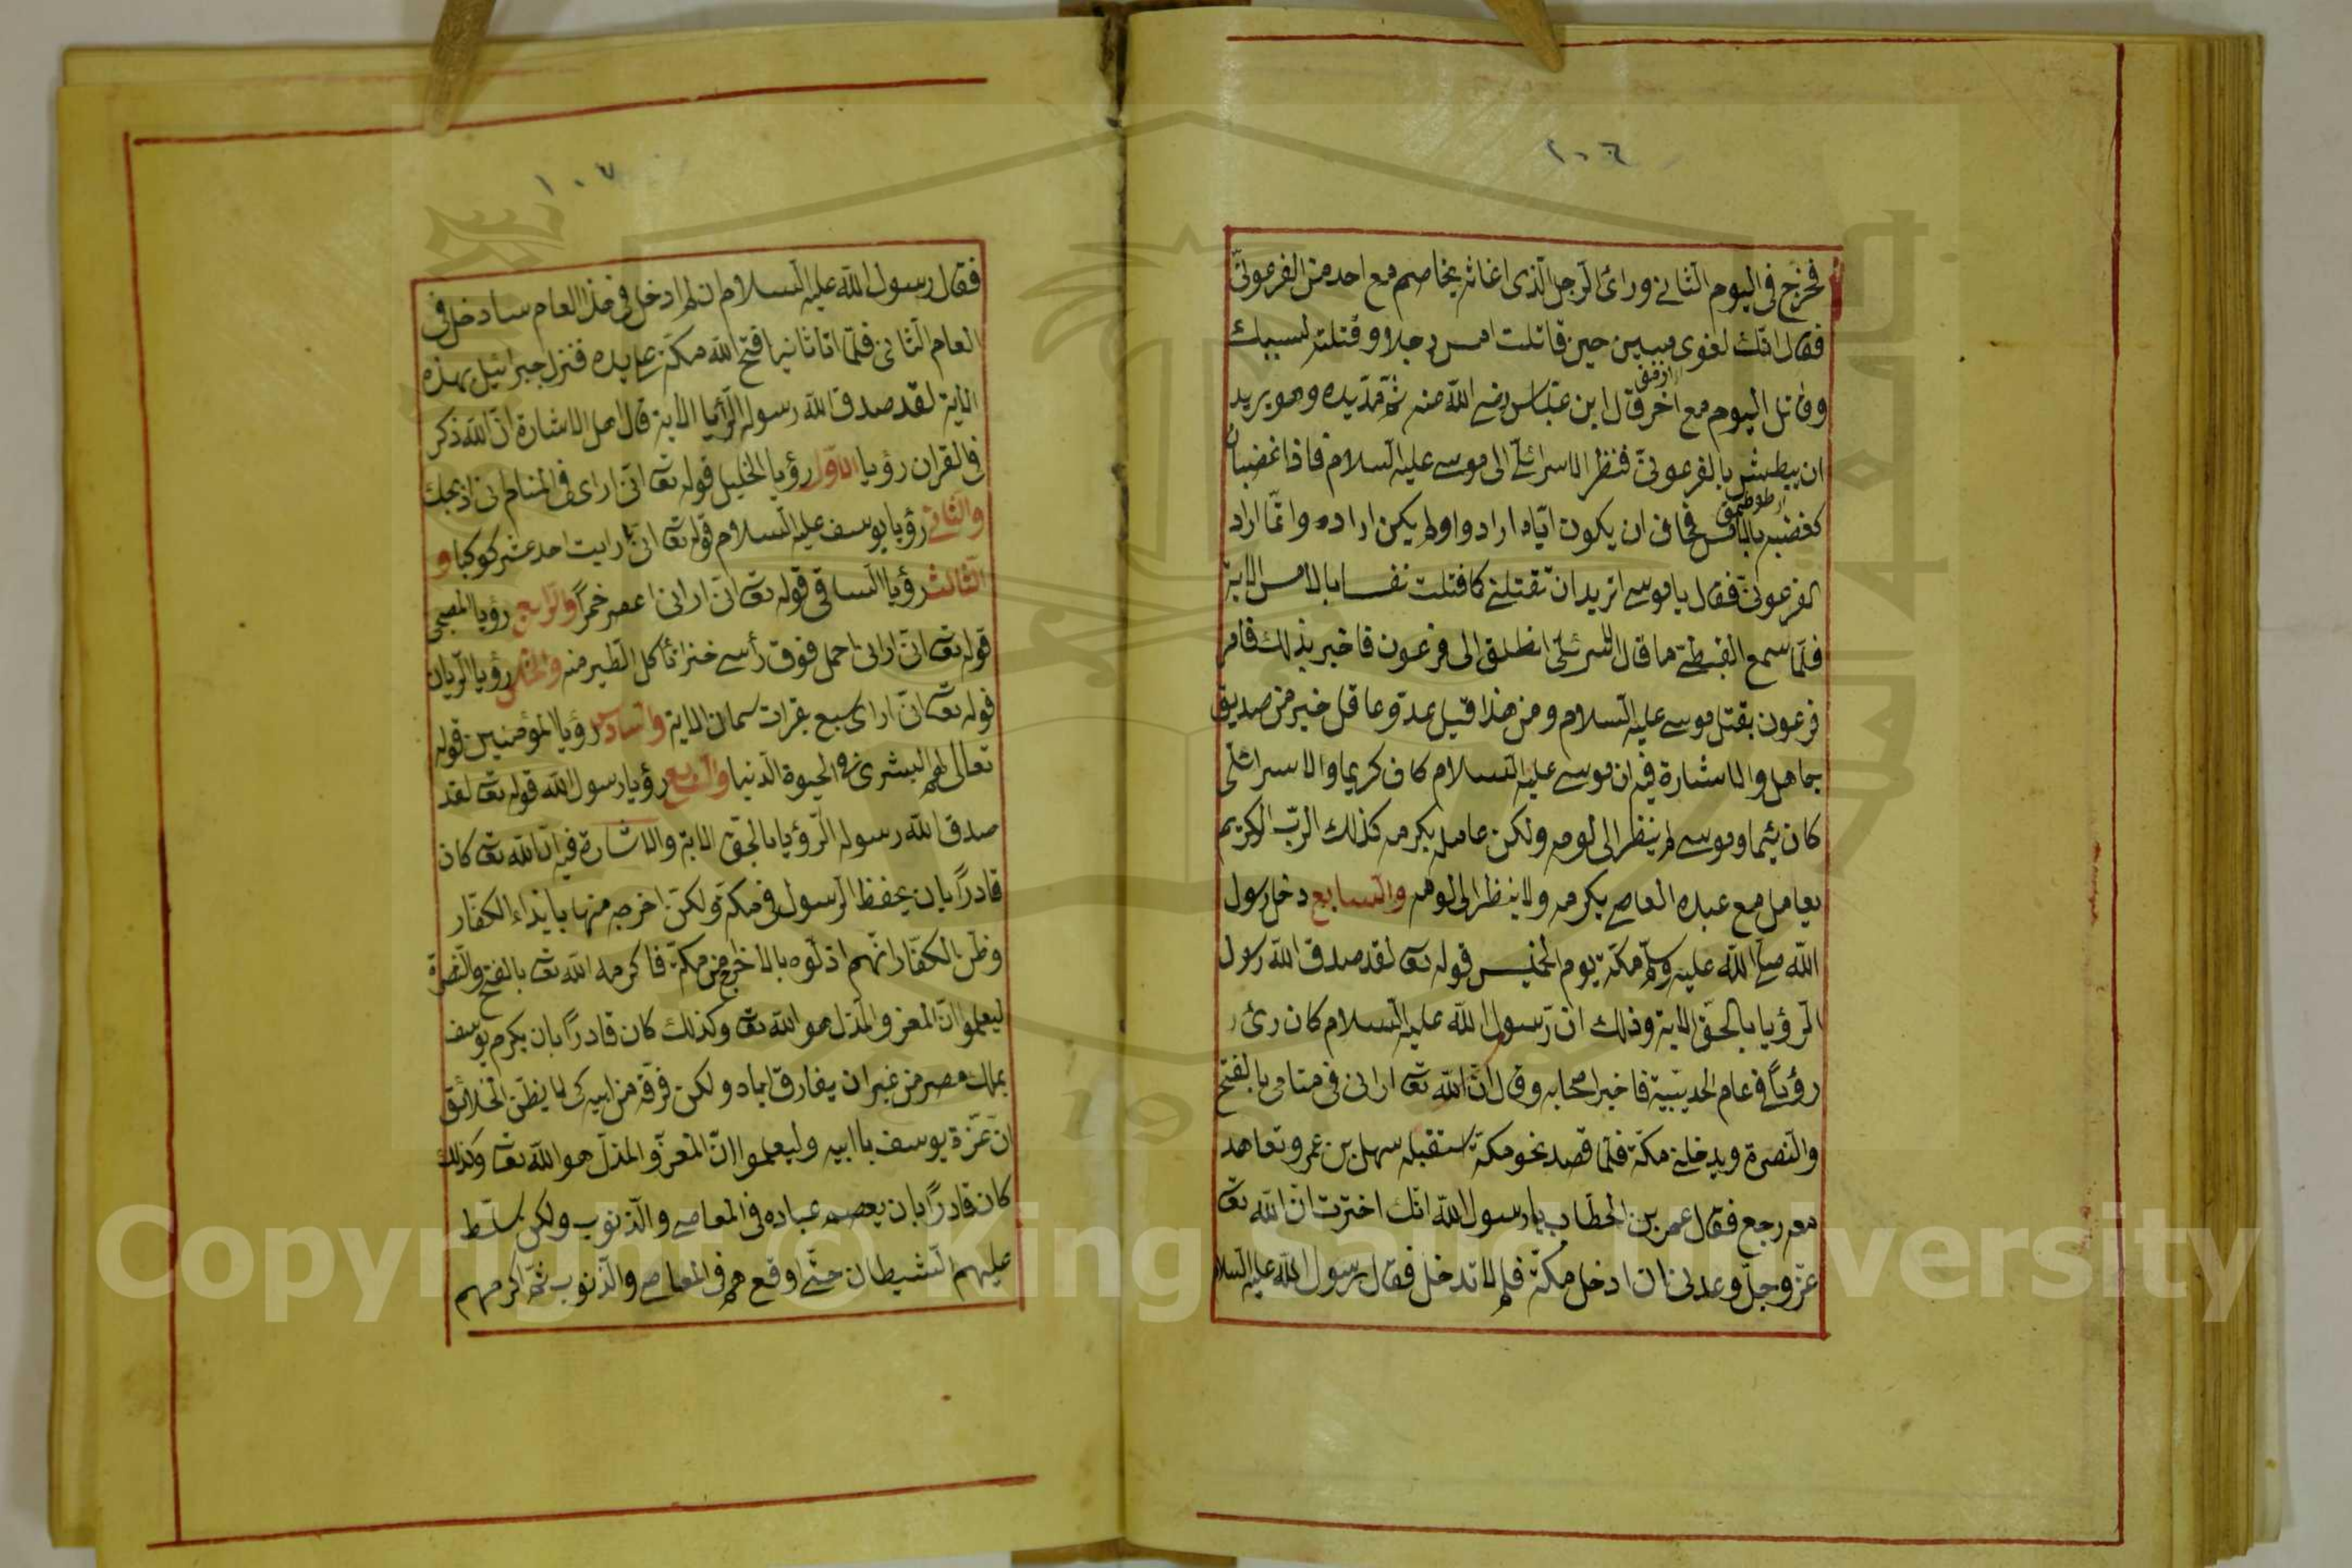 ١٠٦
فخرج فى اليوم الثانى وراى الرجل الذى اغاثه يخاصم مع احد من الفرعونى
فقال انك لغوى مبين حين قاتلت امس رجلا وقتلته لسببك
وقاتل اليوم مع اخر قال ابن عباس رضى الله عنه ثم مد يده وهو يريد
ان يبطش بالفرعونى فنظر الاسرائلى الى موسى عليه السلام فاذا غضبان
كغضبه بالامس فخاف ان يكون اياه اراد ولم يكن اراده وانما اراد
الفرعونى فقال يا موسى اتريد ان تقتلنى كما قتلت نفسا بالامس الاية
فلما سمع القبطى ما قال الاسرئلى انطلق الى فرعون فاخبر بذلك فامر
فرعون بقتل موسى عليه السلام ومن هذا قيل عدو عاقل خير من صديق
جاهل والاشارة فيه ان موسى عليه السلام كان كريما والاسرائلى
كان لئيما وموسى لم ينظر الى لومه ولكن عامله بكرمه كذلك الرب الكريم
يعامل مع عبده العاصى بكرمه ولا ينظر الى لومه والسابع دخل رسول
الله صلى الله عليه وسلم مكة يوم الخميس قوله تعا لقد صدق الله رسوله
الرؤيا بالحق الاية وذلك ان رسول الله عليه السلام كان رئ
رؤيا فى عام الحديبية فاخبر اصحابه وقال ان الله تعا ارانى فى منامى بالفتح
والنصرة ويدخلنى مكة فلما قصد نحو مكة استقبله سهل بن عمر وتعاهد
معه رجع فقال عمر بن الخطاب يا رسول الله انك اخبرت ان الله تعا
عز وجل وعدنى ان ادخل مكة فلم لا تدخل فقال رسول الله عليه السلام
١٠٧
فقال رسول الله عليه السلام ان لم ادخل فى هذا العام سادخل فى
العام الثانى فلما اتا ثانيا فتح الله مكة على يده فنزل جبرائيل بهذه
الاية لقد صدق الله رسوله الرؤيا الاية قال اهل الاشارة ان الله ذكر
فى القران رؤيا الاول رؤيا الخليل قوله تعا انى ارى فى المنام انى اذبحك
والثانى رؤيا يوسف عليه السلام قوله تعا انى رايت احد عشر كوكبا و
الثالث رؤيا الساقى قوله تعا انى ارانى اعصر خمرا والرابع رؤيا
قوله تعا انى ارانى احمل فوق رأسى خبزا تأكل الطير منه والخامس رؤيا الريان
قوله تعا انى ارى سبع بقرات سمان الاية والسادس رؤيا المؤمنين قوله
تعالى لهم البشرى فى الحيوة الدنيا والسابع رؤيا رسول الله قوله تعا لقد
صدق الله رسوله الرؤيا بالحق الاية والاشارة فيه ان الله تعا كان
قادرا بان يحفظ الرسول فى مكة ولكن اخرجه منها بايذاء الكفار
وظن الكفار انهم اذلوه بالاخراج من مكة فاكرمه الله تعا بالفتح والنصرة
ليعلموا ان المعز والمذل هو الله تعا وكذلك كان قادرا بان يكرم يوسف
بملك مصر من غير ان يفارق اباه ولكن فرقه من ابيه كى لا يظن الخلائق
ان عزة يوسف باابيه وليعلموا ان المعز والمذل هو الله تعا وكذلك
كان قادرا بان يعصم عباده فى المعاصى والذنوب ولكن سلط
عليهم الشيطان حتى اوقعهم فى المعاصى والذنوب ثم اكرمهم
Copyright © King Saud University